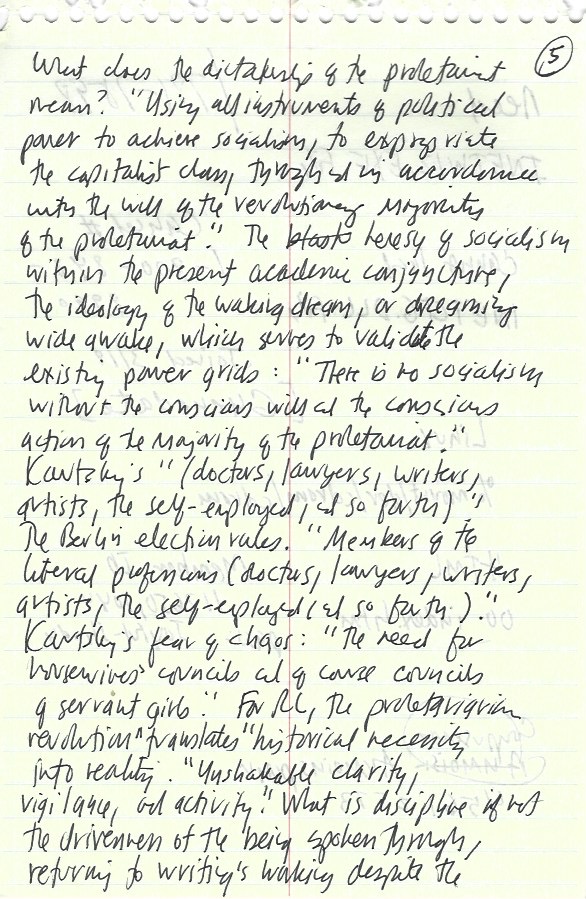 5
What does the dictatorship of the proletariat
mean? "Using all instruments of political
power to achieve socialism, to expropriate
the capitalist class, through and in accordance
with the will of the revolutionary majority
of the proletariat." The heresy of socialism
within the present academic conjuncture,
the ideology of the waking dream, or dreaming
wide awake, which serves to validate the
existing power grids: "There is no socialism
without the conscious will and the conscious
action of the majority of the proletariat."
Kautsky's "(doctors, lawyers, writers,
artists, the self-employed, and so forth)";
The Berlin election rules. "Members of the
liberal professions (doctors, lawyers, writers,
artists, the self-employed (and so forth.)"
Kautsky's fear of chaos: "the need for
housewives' councils and of course councils
of servant girls." For RL, the proletarigrian
revolution "translates" historical necessity
into reality. "Unshakable clarity,
vigilance, and activity." What is discipline if not
the drivenness of the being spoken through,
returning to writing's waking despite the